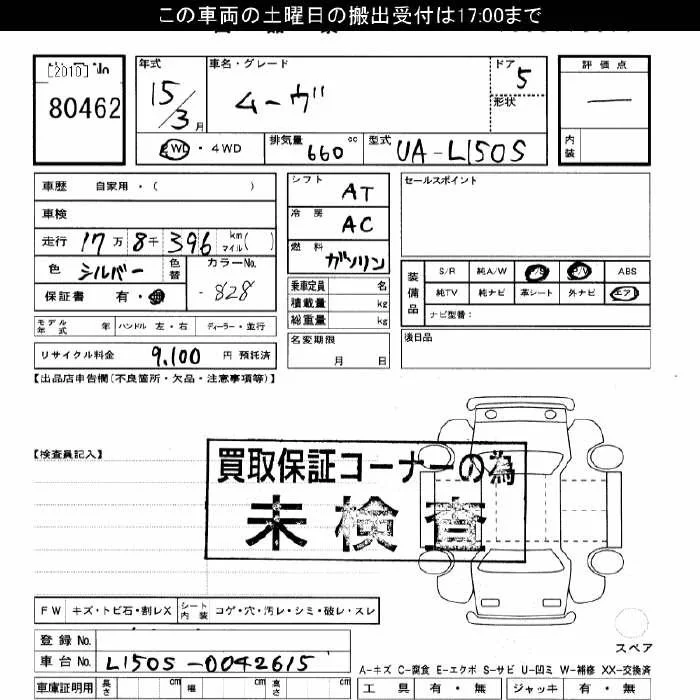 この車両の土曜日の搬出受付は17:00まで
[2010]
80462
年式 15/3月
車名・グレード ムーヴ
ドア 5
形状
2WD・4WD
排気量 660cc
型式 UA-L150S
評価点 —
内装
車歴 自家用・( )
車検
走行 17万8千396 km マイル( )
色 シルバー 色替 カラーNo. -828
保証書 有・無
モデル年式 年 ハンドル 左・右 ディーラー・並行
リサイクル料金 9,100 円 預託済
シフト AT
冷房 AC
燃料 ガソリン
乗車定員 名
積載量 kg
総重量 kg
名変期限 月 日
セールスポイント
装備品 S/R 純A/W P/S P/W ABS
純TV 純ナビ 革シート 外ナビ エアB
ナビ型番:
後日品
【出品店申告欄(不良箇所・欠品・注意事項等)】
【検査員記入】
買取保証コーナーの為
未検査
FW キズ・トビ石・割レX シート内装 コゲ・穴・汚レ・シミ・破レ・スレ
登録No.
車台No. L150S-0042615
車庫証明用 長さ cm 幅 cm 高さ cm
スペア
A-キズ C-腐食 E-エクボ S-サビ U-凹ミ W-補修 XX-交換済
工具 有・無 ジャッキ 有・無